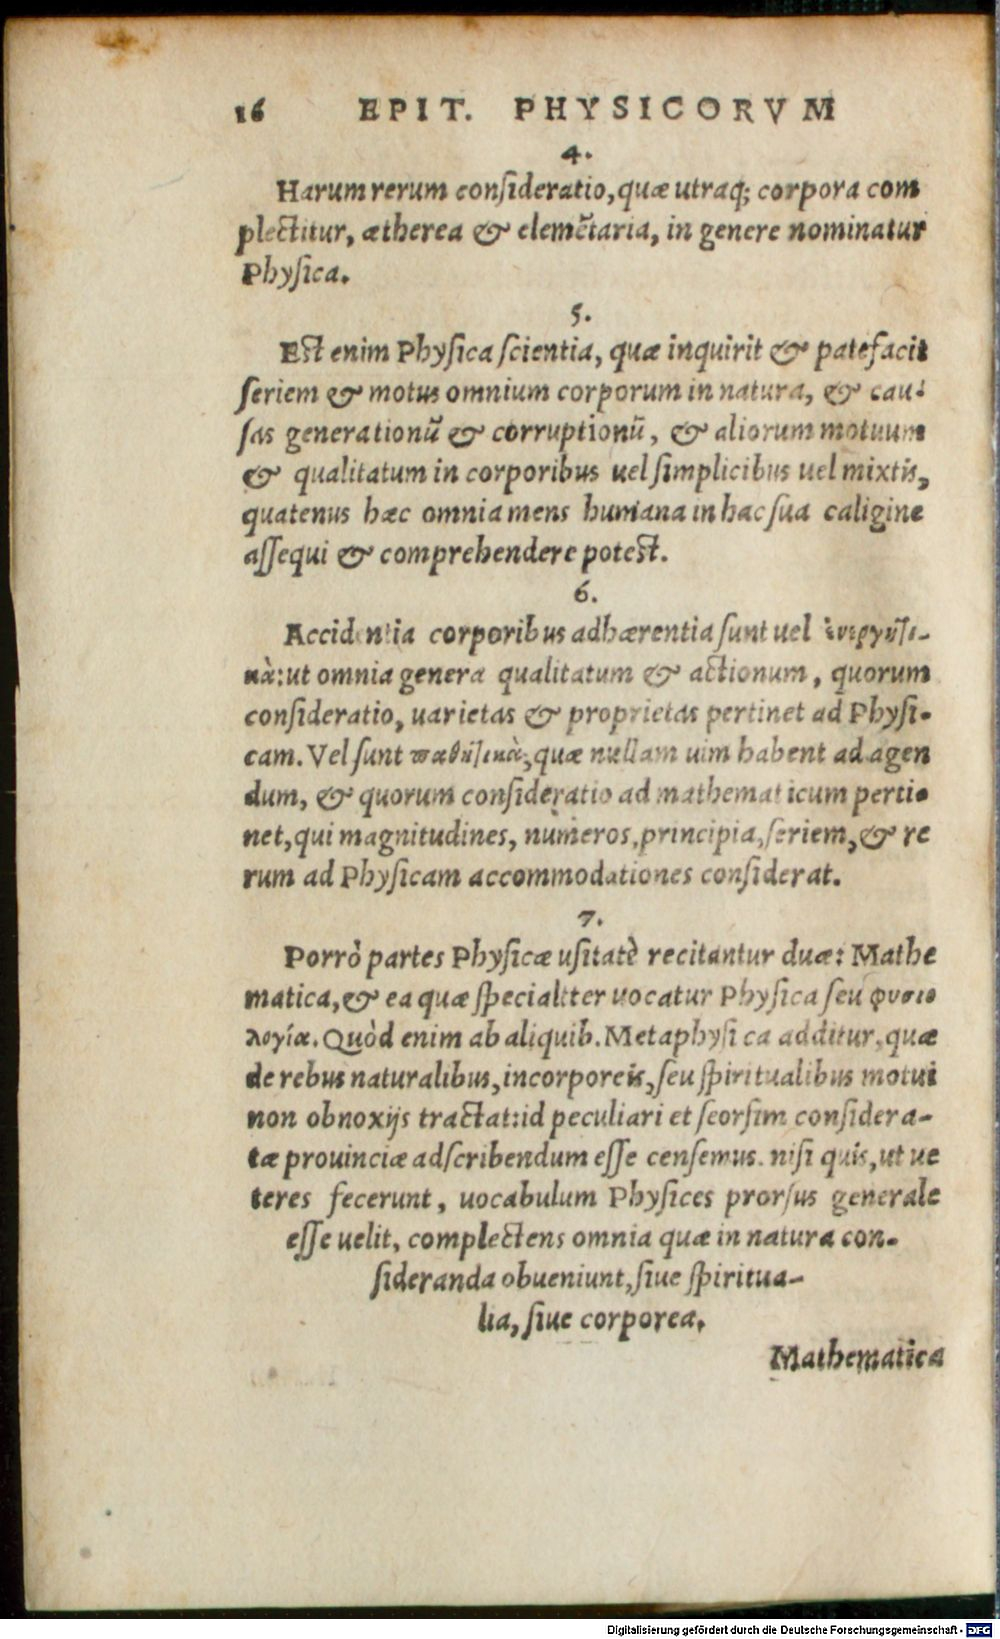 16 EPIT. PHYSICORVM
4.
Harum rerum conſideratio, quæ utraq; corpora com
plectitur, ætherea & elemẽtaria, in genere nominatur
Phyſica.
5.
Eſt enim Phyſica ſcientia, quæ inquirit & patefacit
ſeriem & motus omnium corporum in natura, & cau-
ſas generationũ & corruptionũ, & aliorum motuum
& qualitatum in corporibus uel ſimplicibus uel mixtis,
quatenus hæc omnia mens humana in hac ſua caligine
aſſequi & comprehendere poteſt.
6.
Accidentia corporibus adhærentia ſunt uel ἐνεργητι-
κὰ: ut omnia genera qualitatum & actionum, quorum
conſideratio, uarietas & proprietas pertinet ad Phyſi-
cam. Vel ſunt παθητικὰ, quæ nullam uim habent ad agen
dum, & quorum conſideratio ad mathematicum perti-
net, qui magnitudines, numeros, principia, ſeriem, & re
rum ad Phyſicam accommodationes conſiderat.
7.
Porrò partes Phyſicæ uſitatè recitantur duæ: Mathe
matica, & ea quæ ſpecialiter uocatur Phyſica ſeu φυσιο
λογία. Quòd enim ab aliquib. Metaphyſica additur, quæ
de rebus naturalibus, incorporeis, ſeu ſpiritualibus motui
non obnoxijs tractat: id peculiari et ſeorſim conſidera-
tæ prouinciæ adſcribendum eſſe cenſemus. niſi quis, ut ue
teres fecerunt, uocabulum Phyſices prorſus generale
eſſe uelit, complectens omnia quæ in natura con-
ſideranda obueniunt, ſiue ſpiritua-
lia, ſiue corporea.
Mathematica
Digitalisierung gefördert durch die Deutsche Forschungsgemeinschaft - DFG